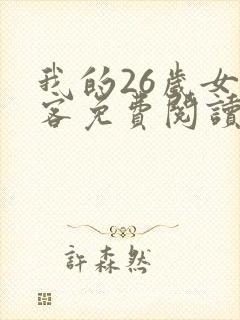 我的26歲女
客免費閱讀
許森然